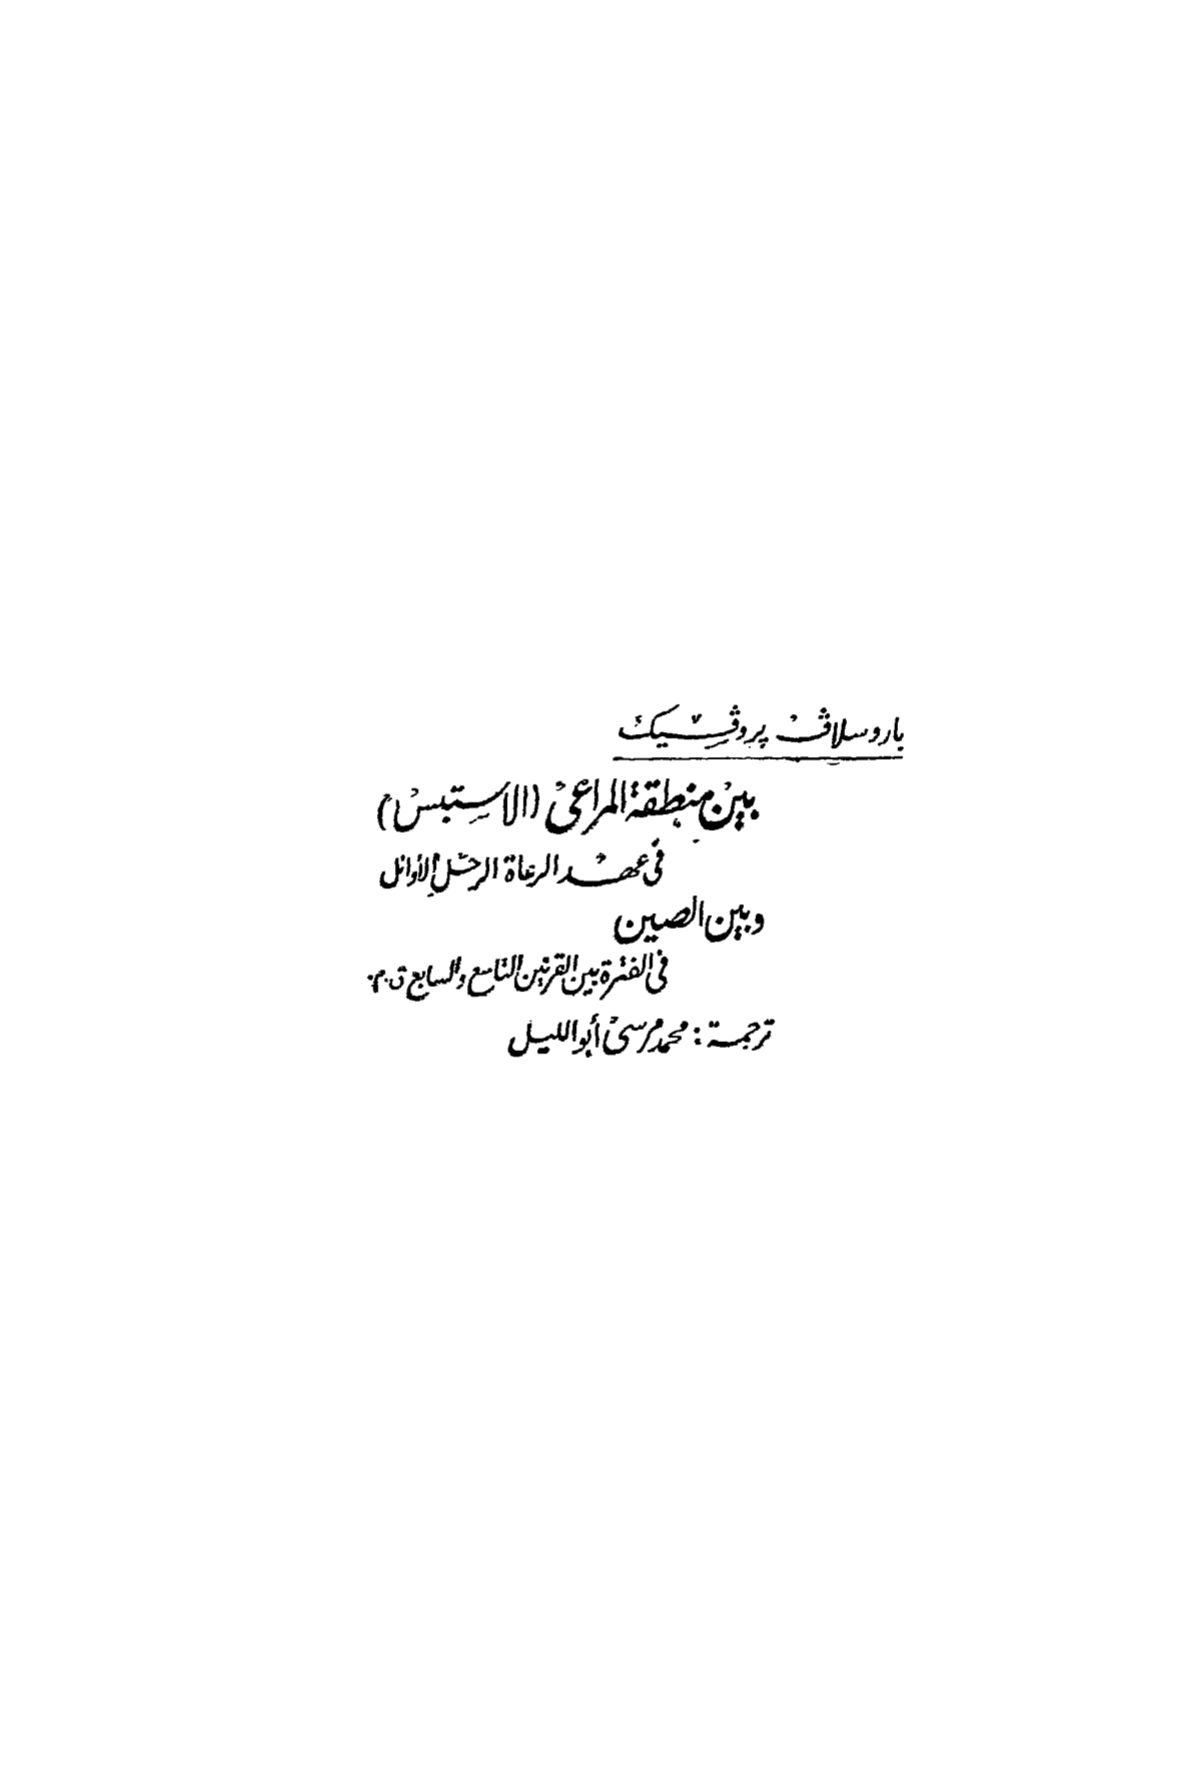 ياروسلاڤ پروڤيك
بين منطقة المراعى (الاستبس)
فى عهد الرعاة الرحل الأوائل
وبين الصين
فى الفترة بين القرنين التاسع والسابع ق.م.
ترجمة : محمد مرسى أبو الليل